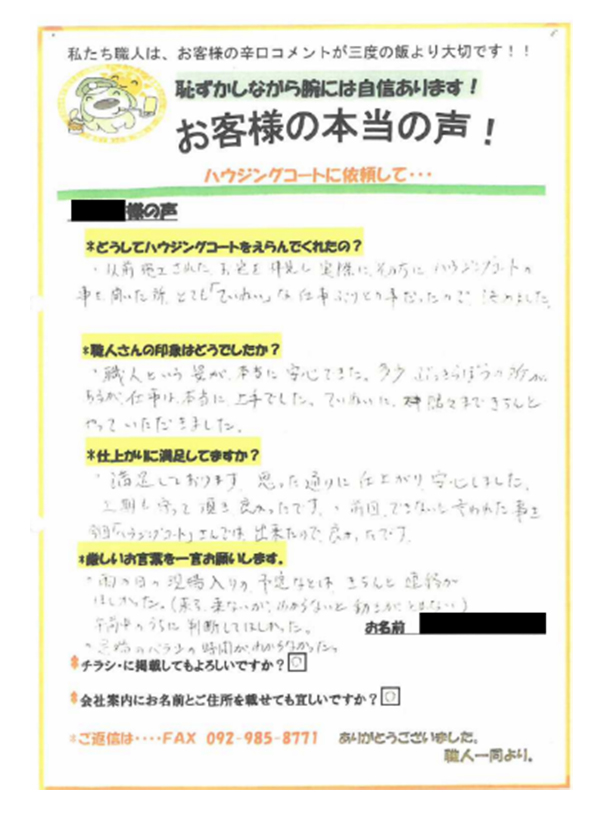 私たち職人は、お客様の辛口コメントが三度の飯より大切です！！
恥ずかしながら腕には自信あります！
お客様の本当の声！
ハウジングコートに依頼して・・・
様の声
*どうしてハウジングコートをえらんでくれたの？
・以前施工されたお宅を拝見し実際に、その方に ハウジングコートの
事を聞いた所、とても「ていねい」な仕事ぶりとの事だったので 決めました。
*職人さんの印象はどうでしたか？
・職人という感が、本当に安心できた。多少 ぶっきらぼうの所が
あるが、仕事は、本当に上手でした。ていねいに、隅々まできちんと
やっていただきました。
*仕上がりに満足してますか？
・満足しております。思った通りに仕上がり、安心しました。
工期も守って頂き良かったです。・前回、できないと言われた事を
今回「ハウジングコート」さんでは、出来たので、良かったです。
*厳しいお言葉を一言お願いします。
・雨の日の現場入りの予定などは、きちんと連絡が
ほしかった。(来る、来ないが、わからないと動きがとれない)
午前中のうちに判断してほしかった。
お名前
足場のバラシの時間がわからなかった。
チラシ・に掲載してもよろしいですか？
会社案内にお名前とご住所を載せても宜しいですか？
*ご返信は・・・・FAX 092-985-8771 ありがとうございました。
職人一同より。